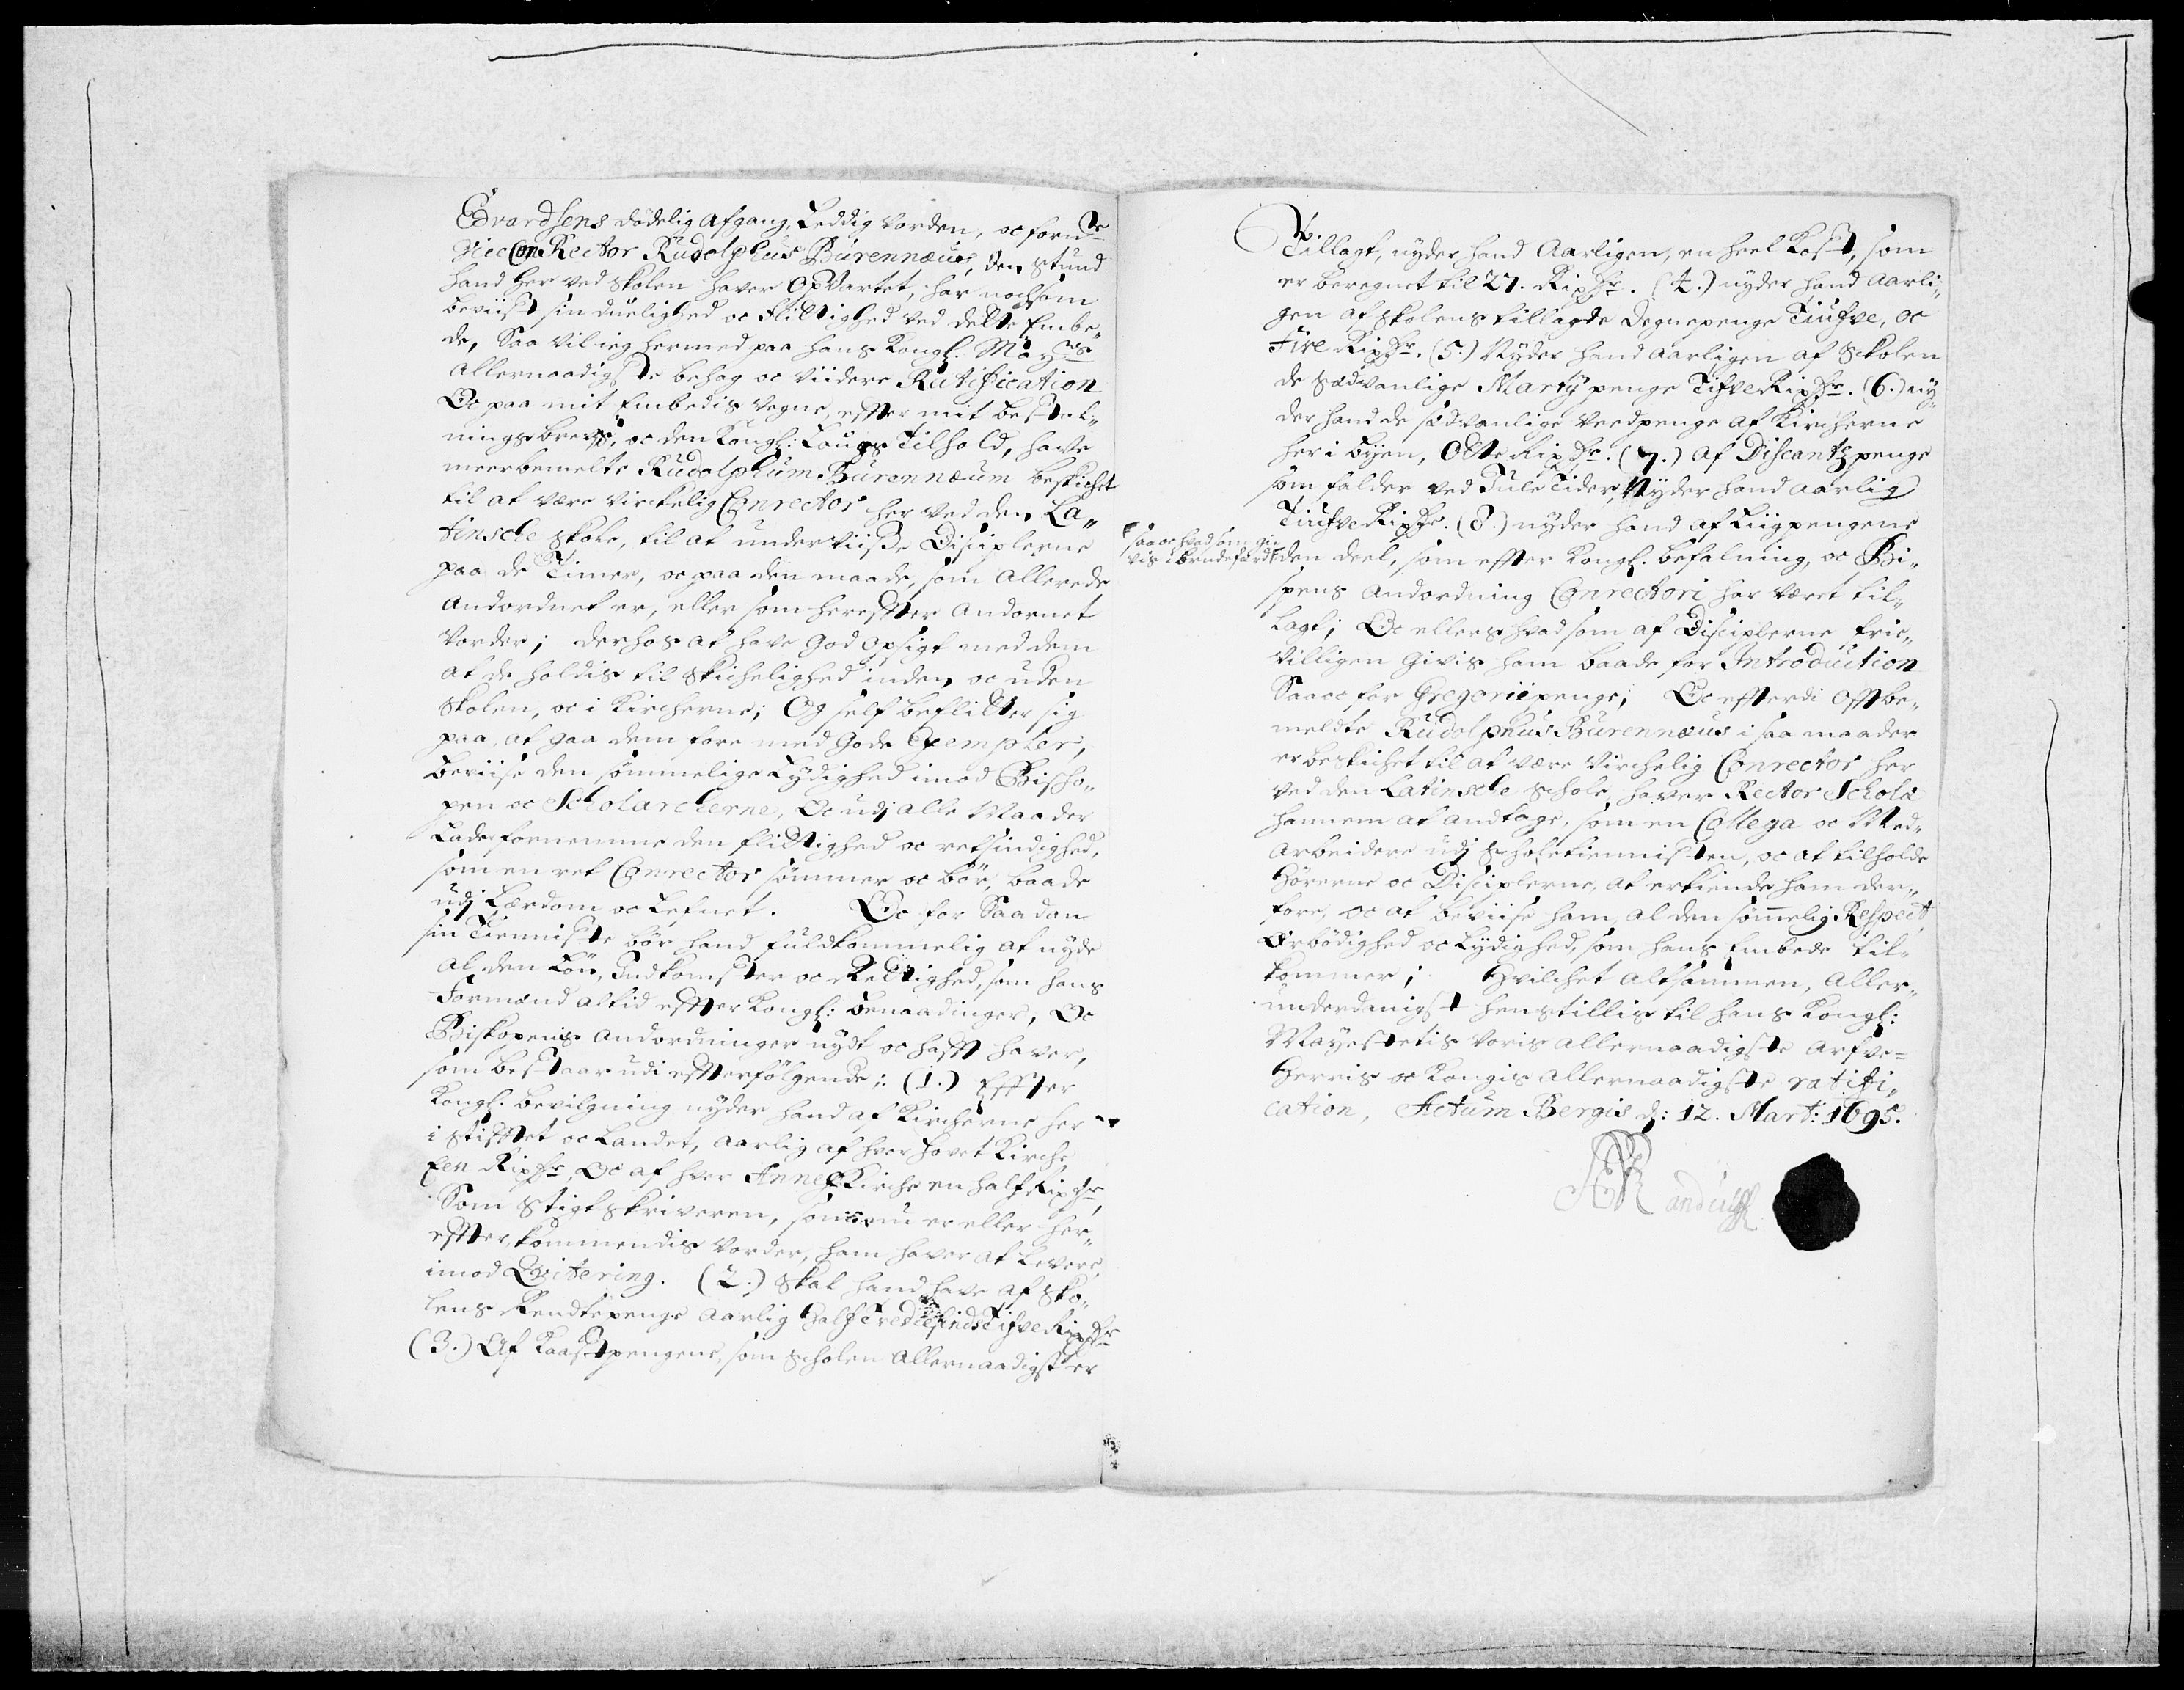 Edvardsens dødelig afgang, Leddig vorden, oc fornte
Vice Con Rector Rudolphus Bürennæus, den stund
hand her ved skolen haver Opvartet, har nochsom
beviist sin duelighed oc flittighed ved dette Embe„
de, Saa vil ieg hermed paa hans Kongl. Mayts
allernaadigste behag oc viidere Ratification
Oc paa mit Embedis vegne, effter mit bestal„
nings brefs, oc den Kongl: Lougs Tilhold, have
meerbemelte Rudolphum Burennæum beskichet
til at være virkelig Conrector her ved den La„
tinsche skole, til at underviiße Disciplerne
paa de Timer, oc paa den maade, som allerede
andordnet er, eller som hereffter andornet
vorder; derhos at have god opsigt med dem
at de holdis til skichelighed inden oc uden
Skolen, oc i Kircherne; Og self beflitter sig
paa, at gaa dem fore med gode Exempler,
beviise den sømmelige Lydighed imod Bischo„
pen oc Scholarcherne, Oc udj alle Maader
Lade fornemme den flittighed oc retsindighed,
som en ret Conrector sømmer oc bør, baade
udj Lærdom oc Lefnet. Oc for Saadan
sin Tienniste bør hand fuldkommelig at nyde
al den Løn, Indkomster oc Rettighed, som hans
Formænd altid effter Kongl: benaadinger, Oc
Biskopens andordninger nydt oc hafft haver,
som bestaar udi effterfølgende: (1.) Effter
Kongl. bevilgning nyder hand af Kircherne her
i Stifftet oc Landet, aarlig af hver hovet Kirche
Een Rixdr, Oc af hver Annex Kirche en half Rixdr,
Som Stigtskriveren, som nu er eller her„
effter kommendis vorder, ham haver at levere
imod Qvitering. (2.) Skal hand have af sko„
lens Rendtepenge aarlig halftrediesindstifve Rixdr
(3.) Af Kaastpengene, som scholen allernaadigst er
Tillagt, nyder hand aarligen, en heel Kost, som
er beregnet til 27. Rixdr. (4.) nyder hand aarli„
gen af skolens tillagde Degnepenge Tiufve, oc
Fire Rixdr. (5.) Nyder hand aarligen af Skolen
de sædvanlige Martj penge Tifve Rixdr. (6.) ny„
der hand de sædvanlige Veedpenge af Kircherne
her i byen, Otte Rixdr. (7.) af Discantz penge
som falder ved Jule Tider, Nyder hand aarlig
Tiufve Rixdr. (8.) nyder hand af Liigpengene
saa oc hvad som gi„
vis i bondefærd:
den deel, som effter Kongl. befalning, oc Bi„
spens andordning Conrectori har været til„
lagt; Oc ellers hvad som af Disciplerne frie„
villigen givis ham baade for Introduction
Saa oc for Gregorii penge; Oc effterdi offtbe„
meldte Rudolphus Burennæus i saa maader
er beskichet til at være virchelig Conrector her
ved den Latinsche schole, haver Rector Scholæ
hannem at andtage, som en Collega oc Med„
arbeidere udj Scholetiennisten, oc at tilholde
Hørerne oc Disciplerne, at erkiende ham der„
fore, oc at beviise ham, al den sømmelig Respect,
Ærbødighed oc Lydighed, som hans Embede til„
kommer; Hvilchet altsammen, aller„
underdanigst henstillis til hans Kongl:
Mayestetis voris allernaadigste Arfve=
Herris oc Kongis allernaadigste ratifi„
cation, Actum Bergis d: 12. Mart: 1695.